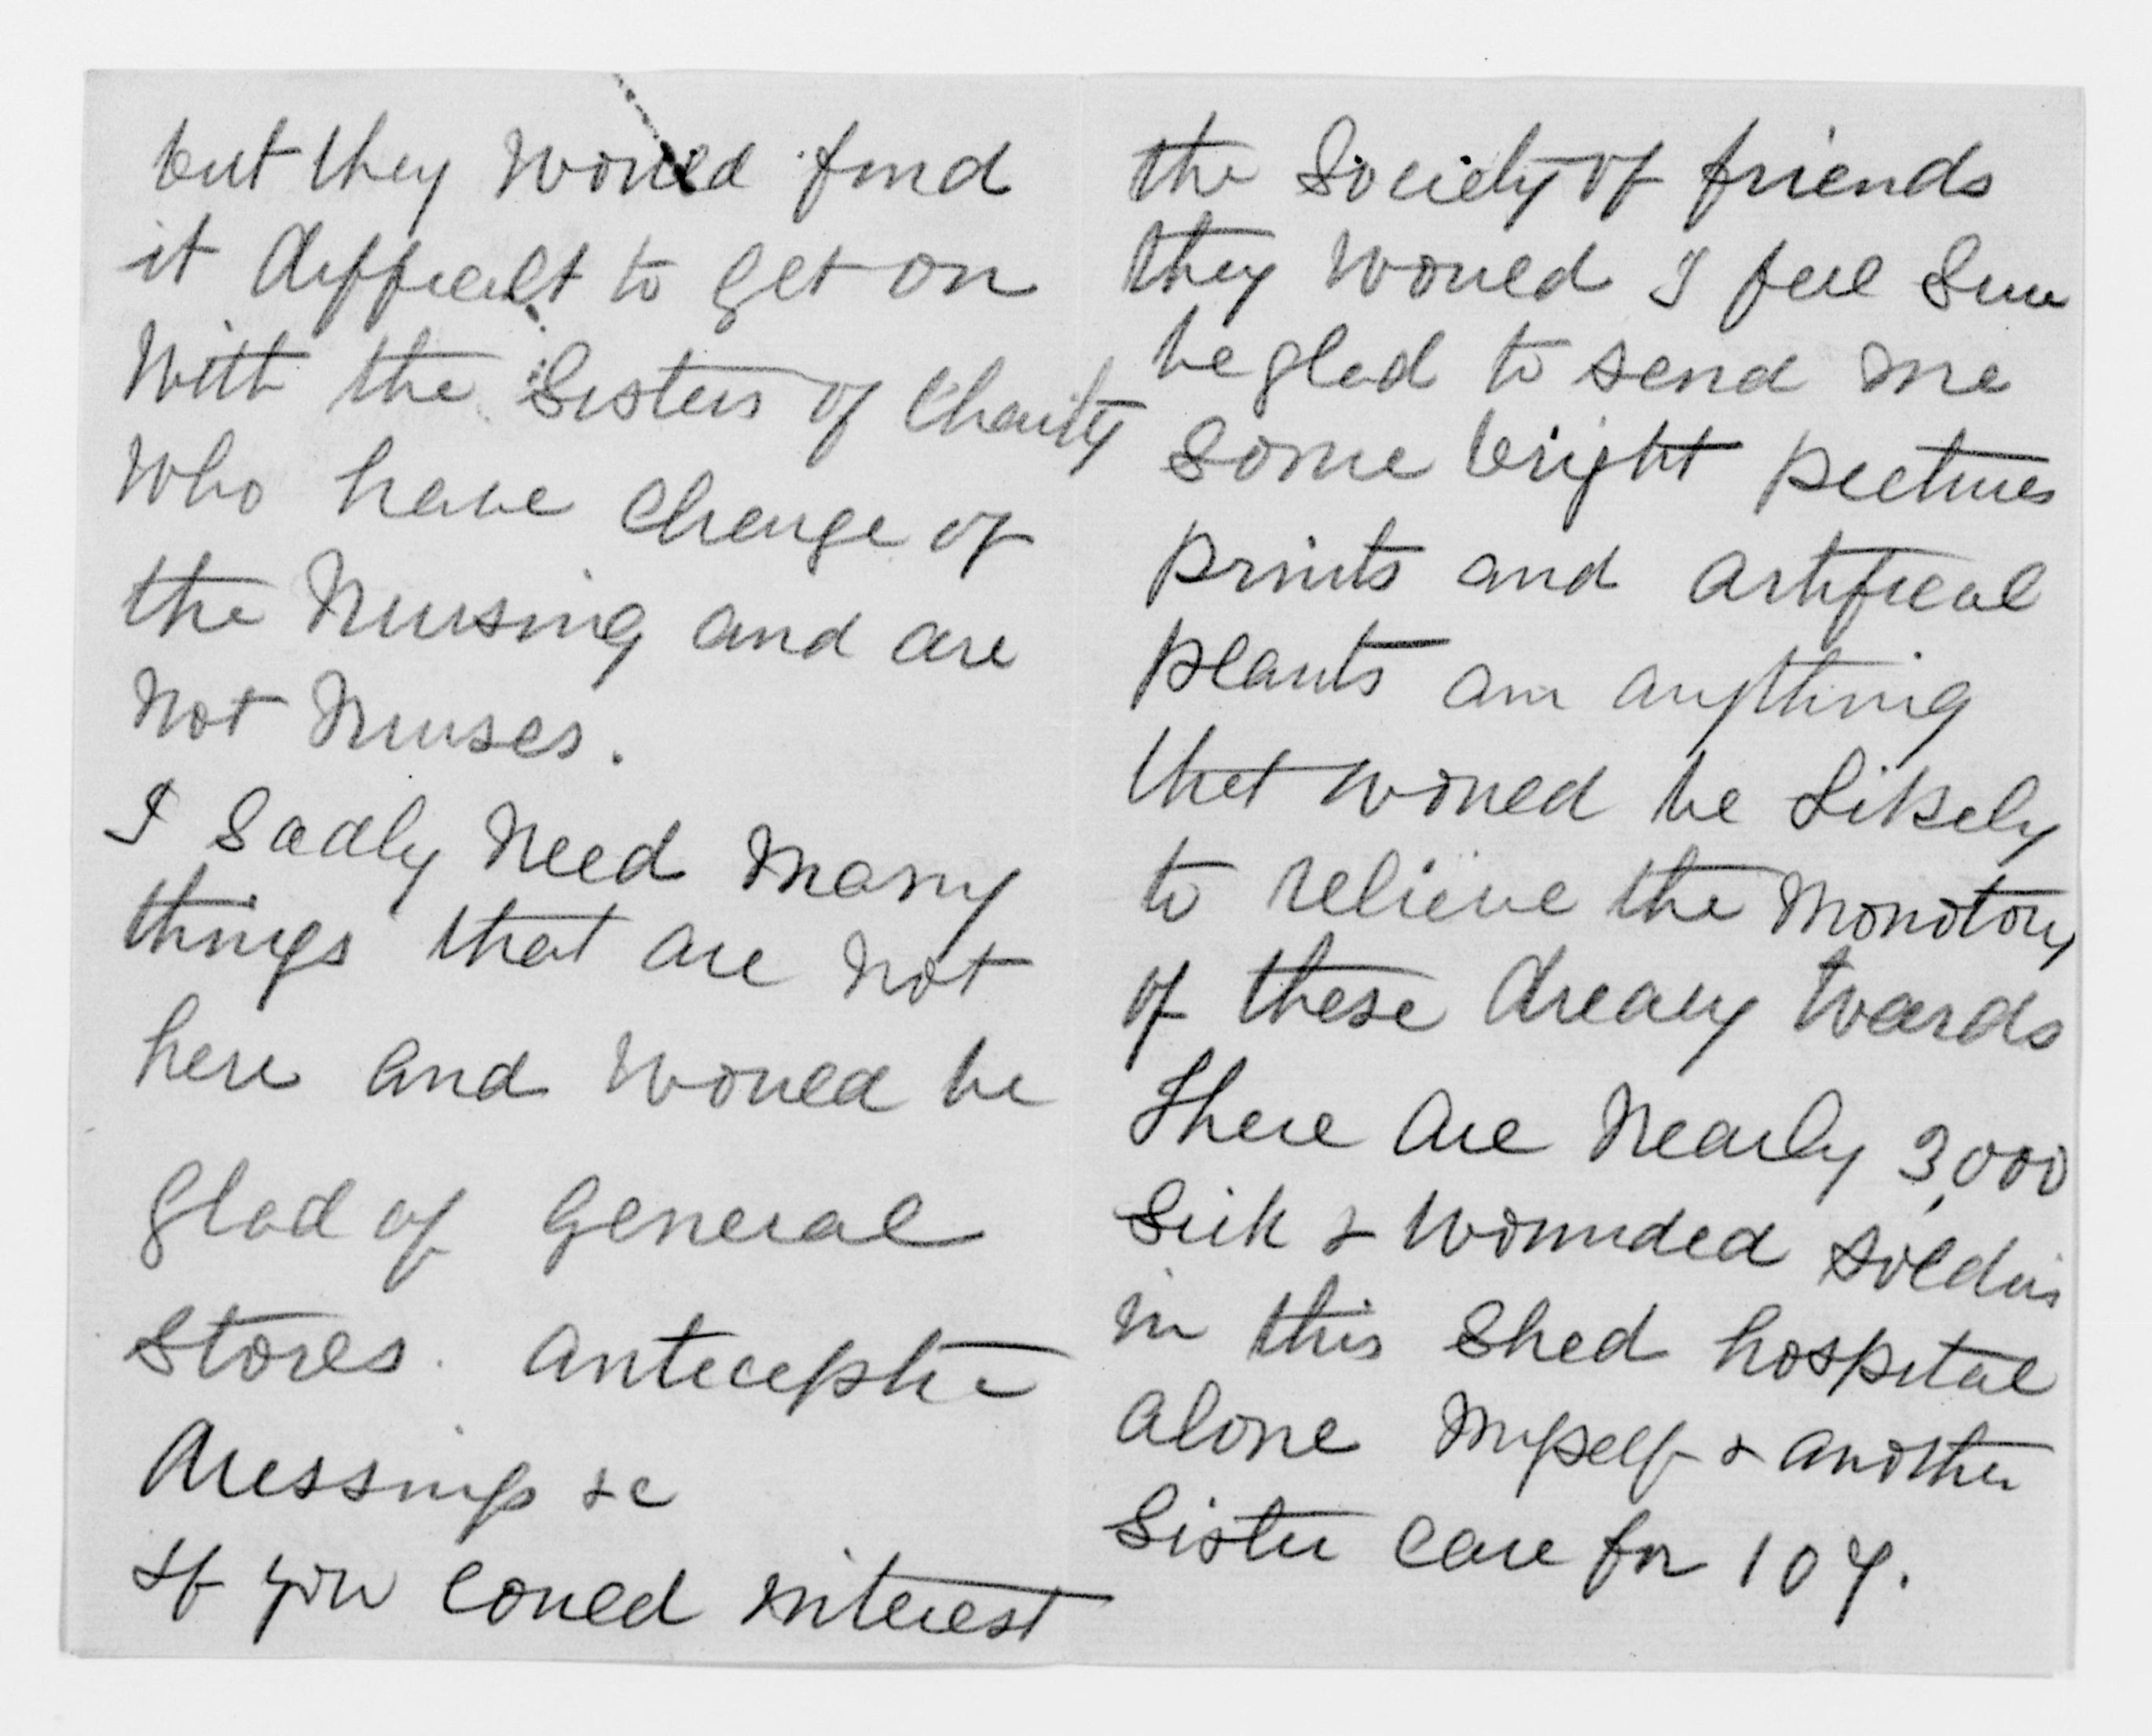 but they would find
it difficult to get on
with the Sisters of Charity
who have charge of
the Nursing and are
not Nurses.
I sadly need many
things that are not
here and would be
glad of General
Stores. Anteceptic
dressings &c
If you could interest
the Society of friends
they would I feel sure
be glad to send me
some bright pictures
prints and artifical
plants am anything
that would be likely
to relieve the monotony
of these dreary wards
There are nearly 3,000
sick & wounded soldiers
in this shed hospital
alone myself & another
Sister care for 107.